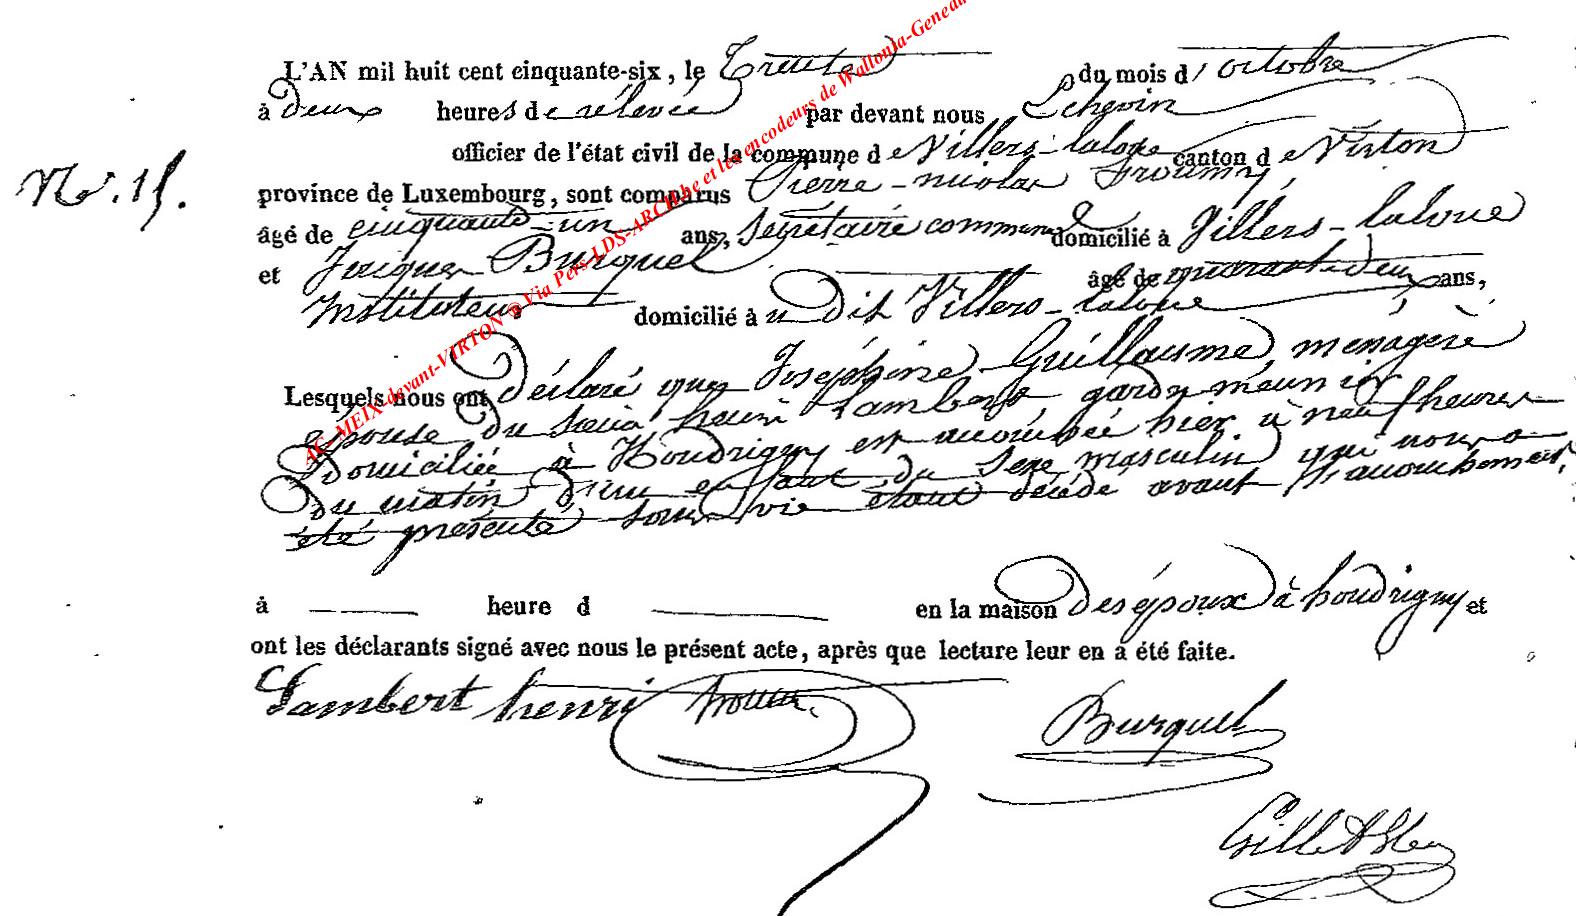 L'AN mil huit cent cinquante-six, le Trente du mois d'octobre
à deux heures de rélevée par devant nous Echevin
officier de l'état civil de la commune de Villers-laloue canton de Virton
N°. 15.
province de Luxembourg, sont comparus Pierre-nicolas
âgé de cinquante-un ans, Secrétaire communal domicilié à Villers-laloue
et Jacques Burquel âgé de quarante deux ans,
Instituteur domicilié à u dit Villers-laloue
Lesquels nous ont déclaré que Joséphine Guillaume, ménagère
épouse du sieur henri Lambert, garde meunier
Domiciliée à Houdrigny est accouchée hier à neuf heures
du matin d'un enfant du sexe masculin qui nous a
été présenté sans vie étant décédé avant l'accouchement,
à heure d en la maison des époux à houdrigny et
ont les déclarants signé avec nous le présent acte, après que lecture leur en a été faite.
Lambert henri Burquel
AC-MEIX-devant-VIRTON @ Via Pers-LDS-ARCH.be et les encodeurs de Wallonia-Geneal